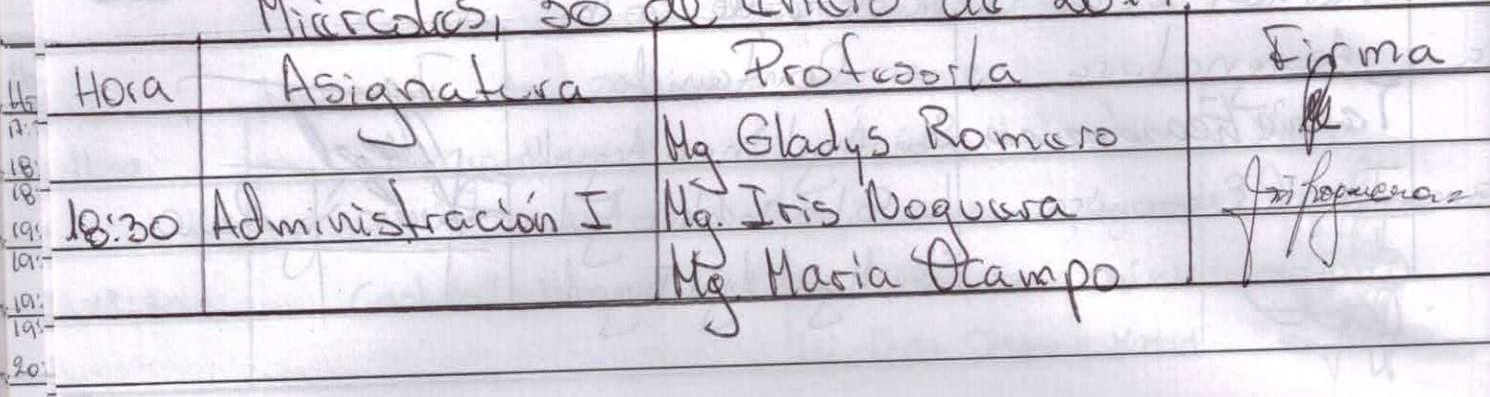 Miércoles, 30 de
Hora Asignatura Profesor/a Firma
Mg Gladys Romero
18:30 Administración I Mg. Iris Noguera
Mg Maria Ocampo
18:
19:
19:
19:
19:
20: